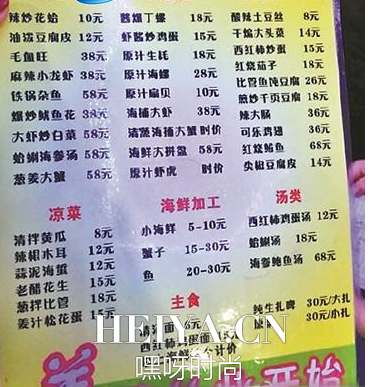 辣炒花蛤 10元
油渣豆腐皮 12元
毛血旺 38元
麻辣小龙虾 38元
铁锅杂鱼 58元
爆炒鱿鱼花 38元
大虾炒白菜 58元
蛤蜊海参汤 58元
葱姜大蟹 58元
酱爆丁螺 18元
虾酱炒鸡蛋 15元
原汁生蚝 18元
原汁海螺 28元
原汁扇贝 10元
海捕大虾 38元
清蒸海捕大蟹 时价
海鲜大拼盘 58元
原汁虾虎 时价
酸辣土豆丝 8元
干煸大头菜 14元
西红柿炒蛋 15元
红烧茄子 18元
比管鱼炖豆腐 26元
煎炒千页豆腐 18元
辣大肠 36元
可乐鸡翅 36元
红烧鲅鱼 68元
尖椒豆腐皮 14元
凉菜
清拌黄瓜 8元
辣根木耳 12元
蒜泥海蜇 12元
老醋花生 15元
葱拌比管 18元
姜汁松花蛋 15元
海鲜加工
小海鲜 5-10元
蟹子 15-30元
鱼 20-30元
主食
汤类
西红柿鸡蛋汤 12元
蛤蜊汤 18元
海参鲍鱼汤 68元
纯生扎啤 30元/大扎
30元/扎
HEIYA.CN
嘿呀时尚
开始